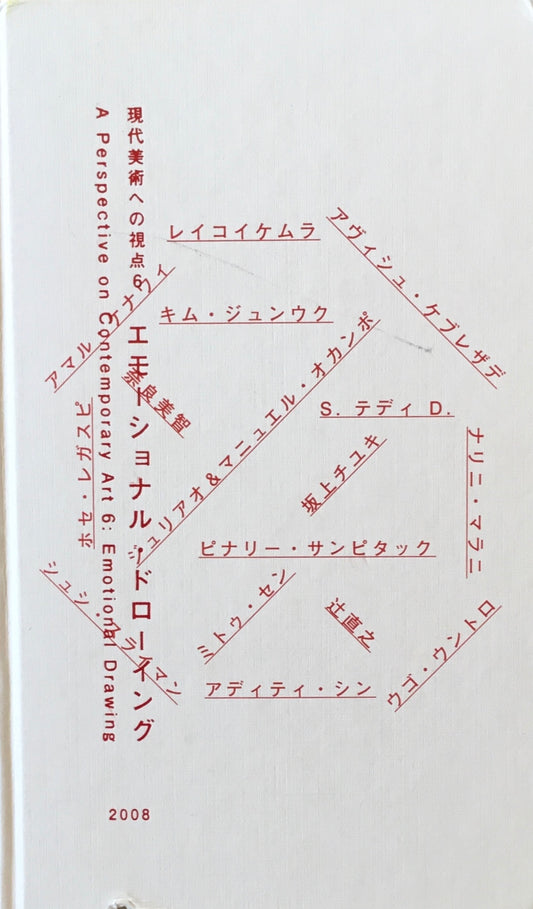 現代美術への視点6 エモーショナル・ドローイング
A Perspective on Contemporary Art 6: Emotional Drawing
レイコイケムラ
アヴィシュ・ケブレザデ
アマル・ケナウィ
キム・ジュンウク
奈良美智
ジュリアオ&マニュエル・オカンポ
S. テディ D.
ホセ・レガスピ
坂上チユキ
ナリニ・マラニ
ピナリー・サンピタック
シュシ・スライマン
ミトゥ・セン
辻直之
ウゴ・ウントロ
アディティ・シン
2008